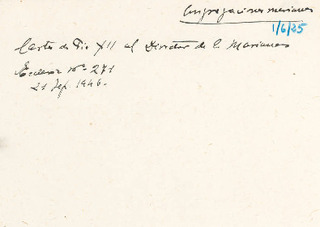 Congregaciones marianas
1/6/25
Carta de Pio XII al Director de C. Marianas
Ecclesia nº 271
21 Sep. 1946.